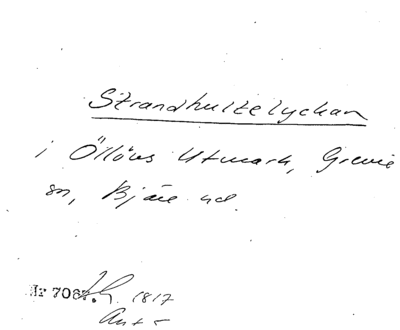 Strandhultelyckan
i Öllövs Utmark, Grevie
sn, Bjäre hd.
Nr 7067. 1817